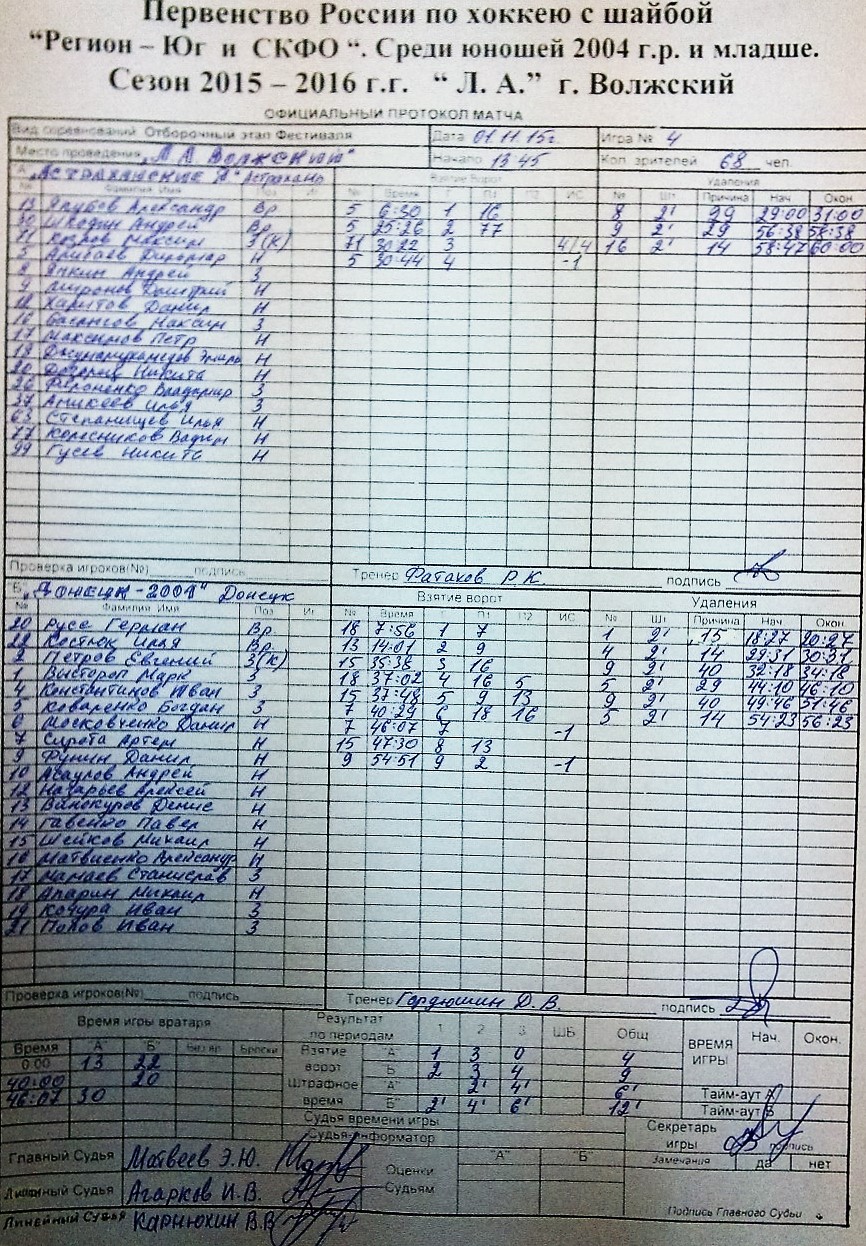 Первенство России по хоккею с шайбой
“Регион – Юг и СКФО “. Среди юношей 2004 г.р. и младше.
Сезон 2015 – 2016 г.г. “ Л. А.” г. Волжский
ОФИЦИАЛЬНЫЙ ПРОТОКОЛ МАТЧА
Вид соревнований Отборочный этап Фестиваля Дата 01.11.15г. Игра № 4
Место проведения „Л.А. Волжский" Начало 13 45 Кол. зрителей 68 чел.
"А" Астраханские Астрахань Взятие ворот Удаления
№ Фамилия Имя Поз Иг № Время Г П1 П2 ИС № Шт Причина Нач Окон.
13 Якубов Александр Вр 5 6:30 1 16 8 2' 29 29:00 31:00
30 Шкодин Андрей Вр 5 25:26 2 77 9 2' 29 56:38 58:38
71 Козлов Максим З(К) 71 30:22 3 4/4 16 2' 14 58:47 60:00
5 Н 5 30:44 4 -1
8 Япкин Андрей З
9 Дмитрий Н
Харитов Данир Н
16 Максим З
17 Максимов Петр Н
Н
20 Никита Н
26 Владимир З
37 Аникеев Илья З
63 Степанищев Илья Н
77 Колесников Вадим Н
99 Гусев Никита Н
Проверка игроков(№) подпись Тренер Фатахов Р.К. подпись
"Б" „Донецк-2001" Донецк Взятие ворот Удаления
№ Фамилия Имя Поз Иг № Время Г П1 П2 ИС № Шт Причина Нач Окон.
20 Русе Герман Вр. 18 7:56 1 7 1 2' 15 18:27 20:27
22 Костюк Илья Вр. 13 14:01 2 9 4 2' 14 29:31 30:31
2 Петров Евгений З(К) 15 35:38 3 16 9 2' 40 32:18 34:18
1 Марк З 18 37:02 4 16 5 5 2' 29 44:10 46:10
4 Константинов Иван З 15 37:48 5 9 13 9 2' 40 49:46 51:46
5 Коваленко Богдан З 7 40:29 6 18 16 5 2' 14 54:23 56:23
6 Московченко Данил Н 7 46:07 7 -1
7 Сирота Артем Н 15 47:30 8 13
9 Фунин Данил Н 9 54:51 9 2 -1
10 Асаулов Андрей Н
12 Назарьев Алексей Н
13 Винокуров Денис Н
14 Гавенко Павел Н
15 Шейков Михаил Н
16 Матвиенко Александр Н
17 Мамаев Станислав З
18 Апарин Михаил Н
19 Кочура Иван З
21 Попов Иван З
Проверка игроков(№) подпись Тренер Гордюшин Д.В. подпись
Время игры вратаря Результат по периодам 1 2 3 ШБ Общ ВРЕМЯ ИГРЫ Нач. Окон.
Время "А" "Б" Броски
0:00 13 22 Взятие "А" 1 3 0 4
40:00 20 ворот "Б" 2 3 4 9
46:07 30 Штрафное "А" 2' 4' 6' Тайм-аут А
время "Б" 2' 4' 6' 12' Тайм-аут Б
Судья времени игры
Судья-информатор Секретарь игры подпись
Главный Судья Матвеев Э.Ю. Оценки "А" "Б" Замечания да нет
Линейный Судья Агарков И.В. Судьям
Линейный Судья Карнюхин В.В. Подпись Главного Судьи